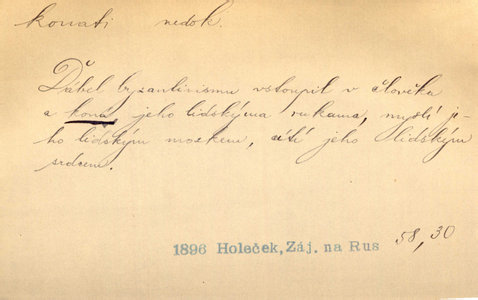 konati nedok.
Ďábel byzantinismu vstoupil v člověka
a koná jeho lidskýma rukama, myslí je-
ho lidským mozkem, cítí jeho lidským
srdcem.
1896 Holeček, Záj. na Rus 58, 30